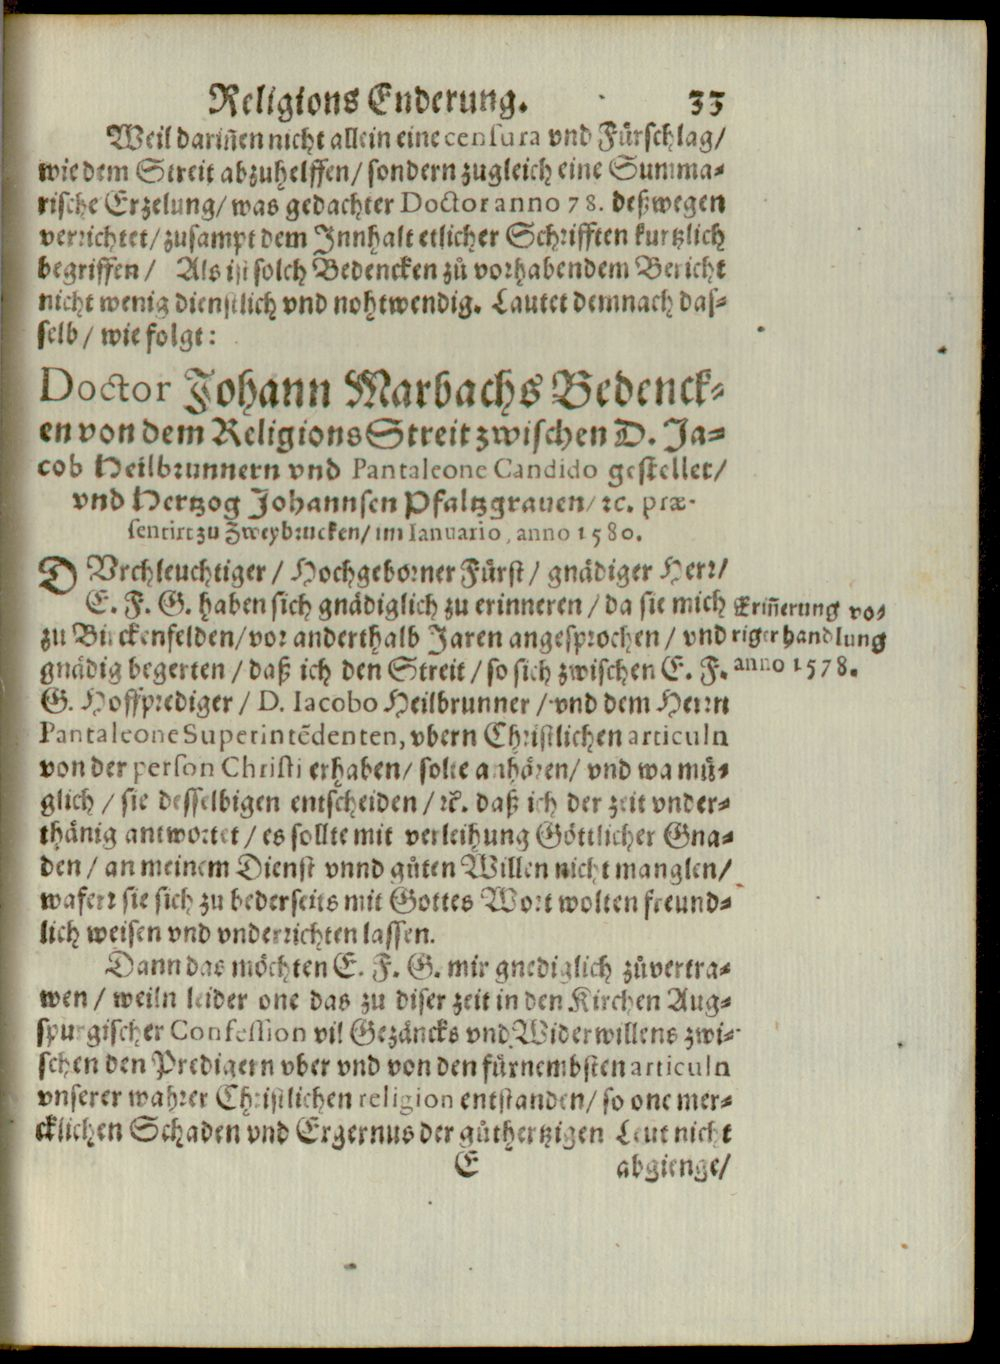 Religions Enderung. 33
Weil dariñen nicht allein eine censura vnd Fürschlag/
wie dem Streit abzuhelffen/ sondern zugleich eine Summa-
rische Erzelung/ was gedachter Doctor anno 78. deßwegen
verrichtet/ zusampt dem Innhalt etlicher Schrifften kurtzlich
begriffen/ Als ist solch Bedencken zů vorhabendem Bericht
nicht wenig dienstlich vnd nohtwendig. Lautet demnach das-
selb/ wie folgt:
Doctor Johann Marbachs Bedenck-
en von dem Religions Streit zwischen D. Ja-
cob Heilbrunnern vnd Pantaleone Candido gestellet/
vnd Hertzog Johannsen Pfaltzgrauen/ ꝛc. præ-
sentirt zu Zweybrucken/ im Ianuario, anno 1580.
DVrchleuchtiger/ Hochgeborner Fürst/ gnädiger Herr/
E. F. G. haben sich gnädiglich zu erinneren/ da sie mich
zu Birckenfelden/ vor anderthalb Jaren angesprochen/ vnd
gnädig begerten/ daß ich den Streit/ so sich zwischen E. F.
G. Hoffprediger/ D. Iacobo Heilbrunner/ vnd dem Herrn
Pantaleone Superintẽdenten, vbern Christlichen articuln
von der person Christi erhaben/ solte anhören/ vnd wa mü-
glich/ sie desselbigen entscheiden/ ꝛc. daß ich der zeit vnder-
thänig antwortet/ es sollte mit verleihung Göttlicher Gna-
den/ an meinem Dienst vnnd gůten Willen nicht manglen/
wafern sie sich zu bederseits mit Gottes Wort wolten freund-
lich weisen vnd vnderrichten lassen.
Dann das möchten E. F. G. mir gnediglich zůvertra-
wen/ weiln leider one das zu diser zeit in den Kirchen Aug-
spurgischer Confession vil Gezäncks vnd Widerwillens zwi-
schen den Predigern vber vnd von den fürnembsten articuln
vnserer wahrer Christlichen religion entstanden/ so one mer-
cklichen Schaden vnd Ergernus der gůthertzigen Leut nicht
E abgienge/
Eriñerung vo-
riger handlung
anno 1578.